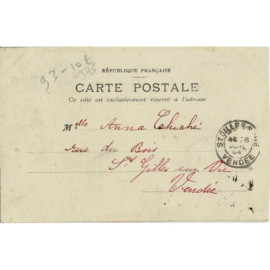 93-10E
RÉPUBLIQUE FRANÇAISE
CARTE POSTALE
Ce côté est exclusivement réservé à l'adresse
Mlle Anna
rue du Bois
St Gilles sur Vie
Vendée
ST GILLES-S
VENDÉE